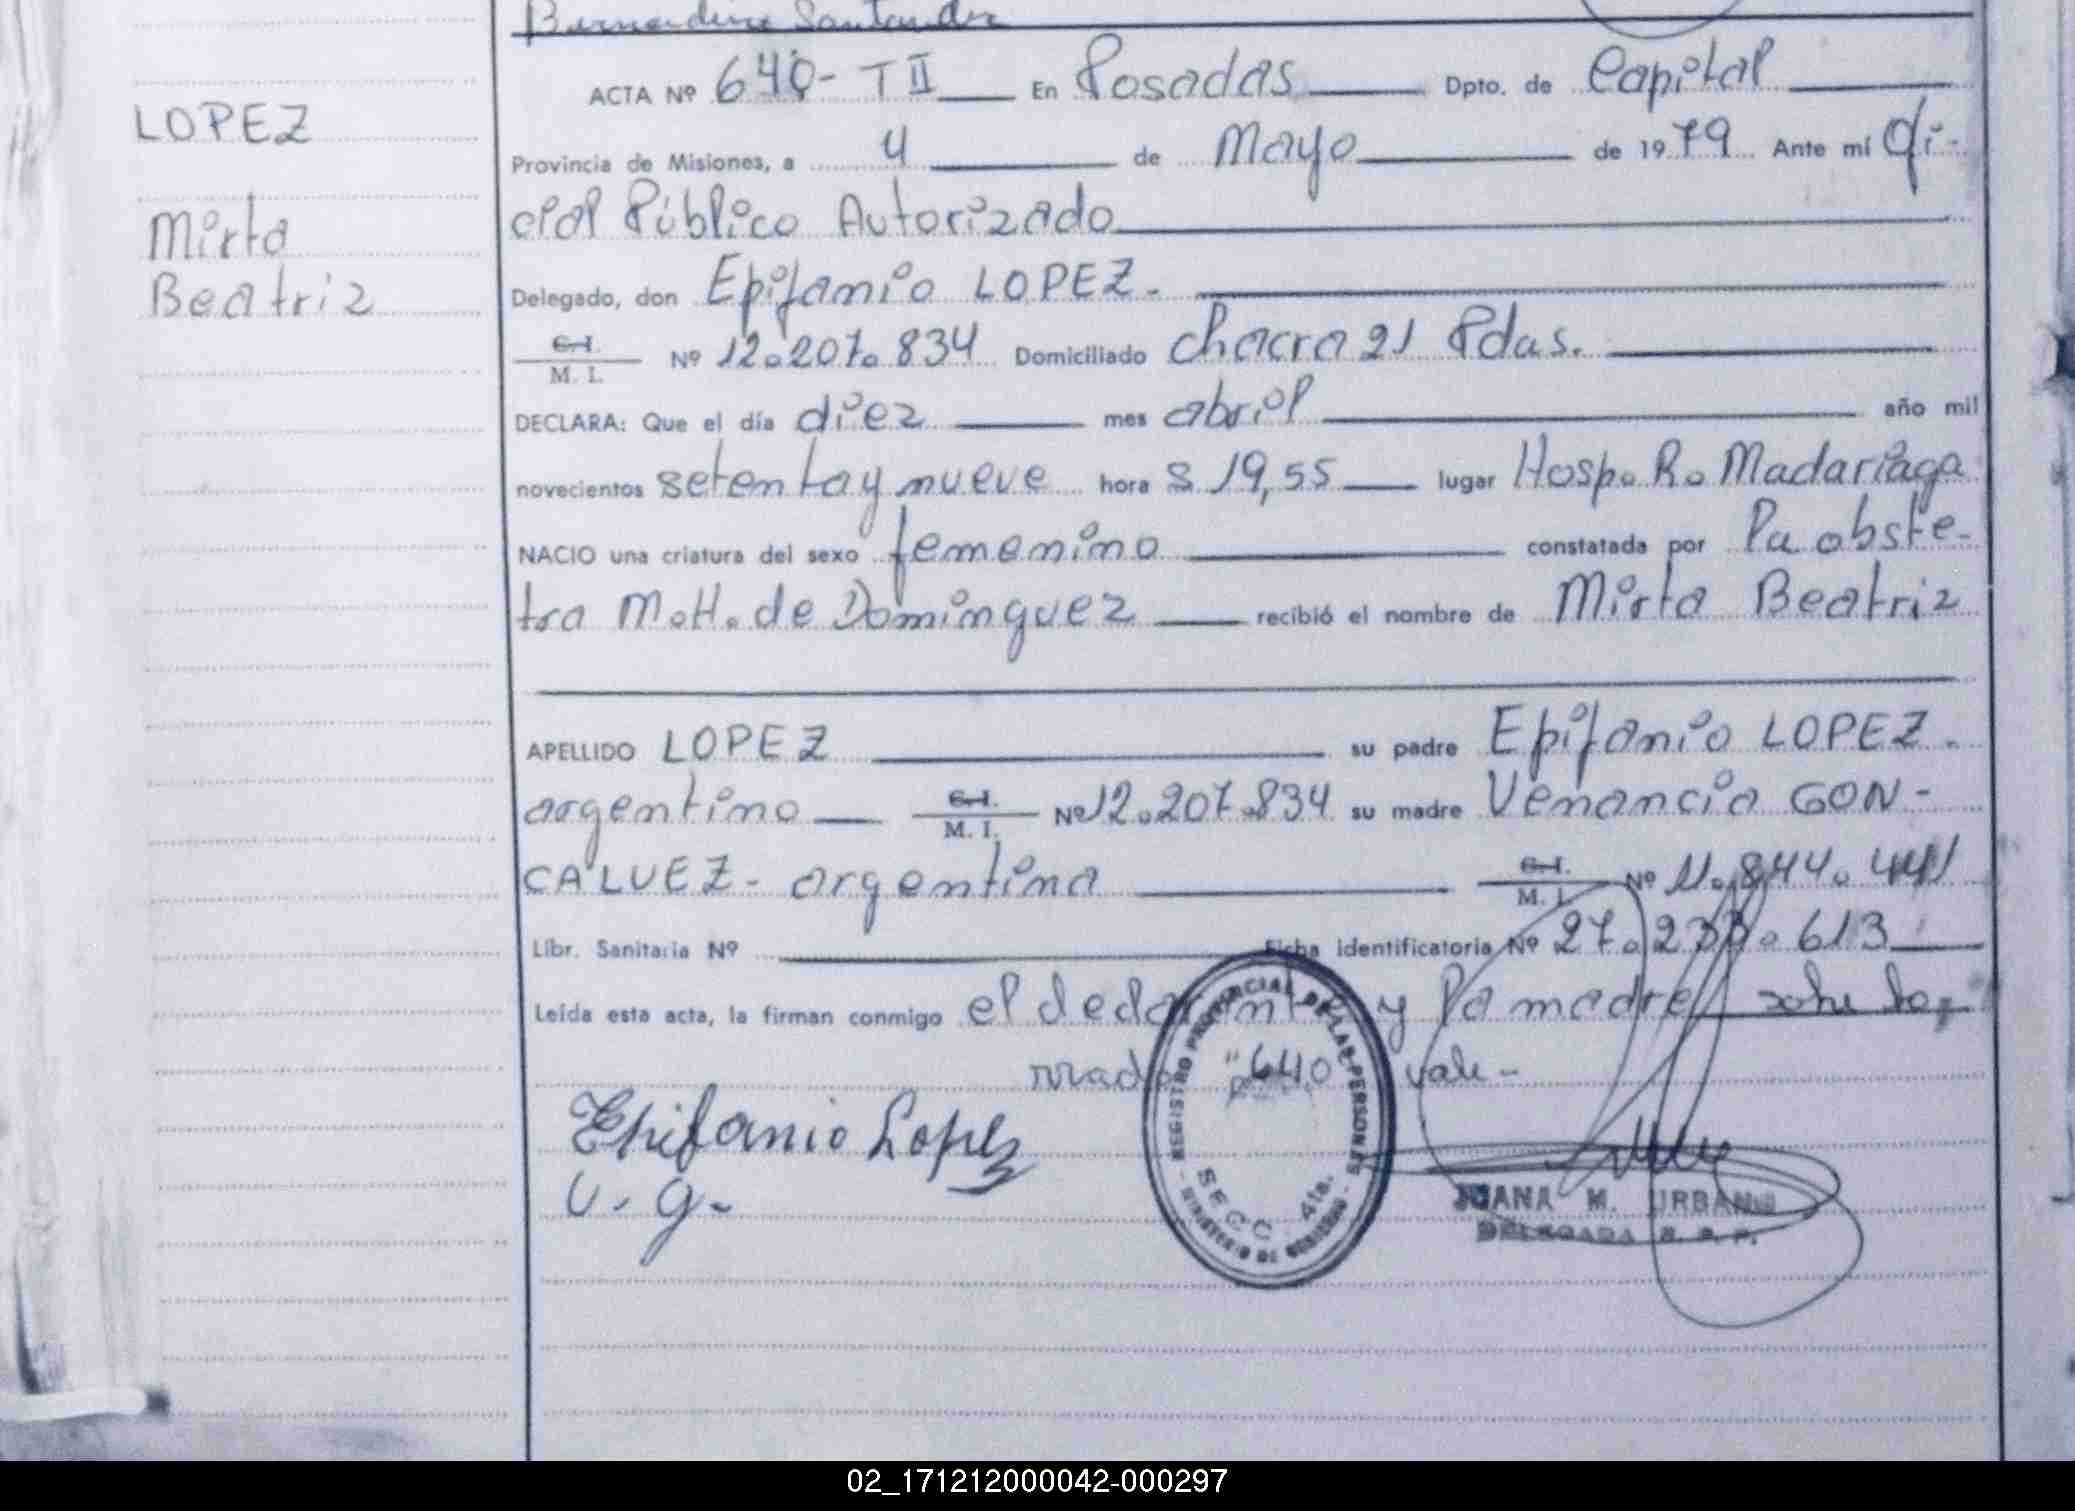 Bernardino Santander
ACTA Nº 640- T II En Posadas Dpto. de Capital
LOPEZ
Provincia de Misiones, a 4 de Mayo de 1979 Ante mí Ofi-
cial Público Autorizado
Mirta
Beatriz
Delegado, don Epifanio LOPEZ.
C.I.
M. I. Nº 12.207.834 Domiciliado chacra 21 Pdas.
DECLARA: Que el día diez mes abril año mil
novecientos setenta y nueve hora s 19,55 lugar Hosp. R. Madariaga
NACIO una criatura del sexo femenino constatada por la obste-
tra M.H. de Dominguez recibió el nombre de Mirta Beatriz
APELLIDO LOPEZ su padre Epifanio LOPEZ.
argentino C.I.
M. I. Nº 12.207.834 su madre Venancia GON-
CALVEZ- argentina C.I.
M. I. Nº 11.844.441
Libr. Sanitaria Nº Ficha identificatoria Nº 27.233.613
Leída esta acta, la firman conmigo el declarante y la madre sobre bo-
rrado "640" vale-
Epifanio Lopez
V. G.
REGISTRO PROVINCIAL DE LAS PERSONAS
SECC. 4ta.
MINISTERIO DE GOBIERNO
JUANA M. URBANO
DELEGADA R. P. P.
02_171212000042-000297